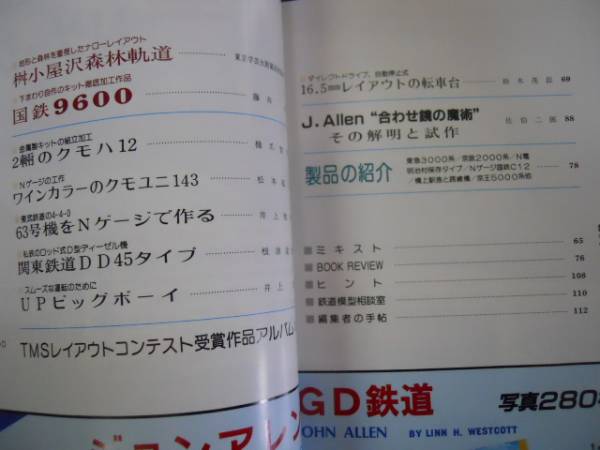 地形と森林を重視したナローレイアウト
桝小屋沢森林軌道
東京学芸大附属高校
下まわり自作のキット徹底加工作品
国鉄9600
藤井
金属製キットの組立加工
2輛のクモハ12
Nゲージの工作
ワインカラーのクモユニ143
松本
東武鉄道の4-4-0
63号機をNゲージで作る
井上
私鉄のロッド式D型ディーゼル機
関東鉄道DD45タイプ
スムーズな運転のために
UPビッグボーイ
井上
TMSレイアウトコンテスト受賞作品アルバム
ダイレクトドライブ、自動停止式
16.5㎜レイアウトの転車台
鈴木茂 69
J.Allen “合わせ鏡の魔術”
その解明と試作
佐伯二郎 88
製品の紹介
東急3000系/京阪2000系/N電
明治村保存タイプ/Nゲージ国鉄C12
/橋上駅舎と跨線橋/京王5000系他
78
ミキスト 65
BOOK REVIEW 76
ヒント 108
鉄道模型相談室 110
編集者の手帖 112
ジョンアレン
GD鉄道
写真280
JOHN ALLEN BY LINN H. WESTCOTT